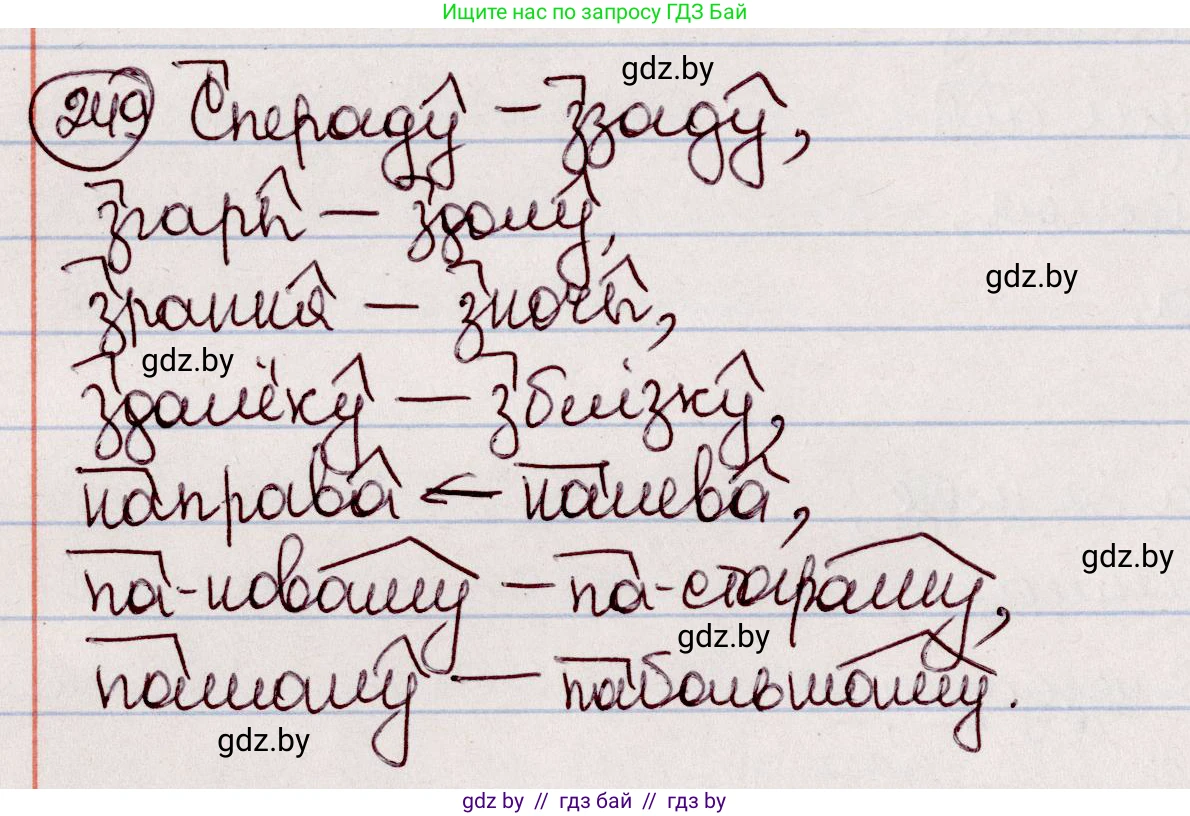 Ищите нас по запросу ГДЗ Бай
249 Спераду – ззаду,
gdz.by
згары – здолу,
gdz.by
зрання – зночы,
gdz.by
здалёку – зблізку,
направа – налева,
gdz.by
па-новаму – па-стараму,
gdz.by
памалу – пабольшаму.
gdz.by
gdz by // гдз бай // гдз by